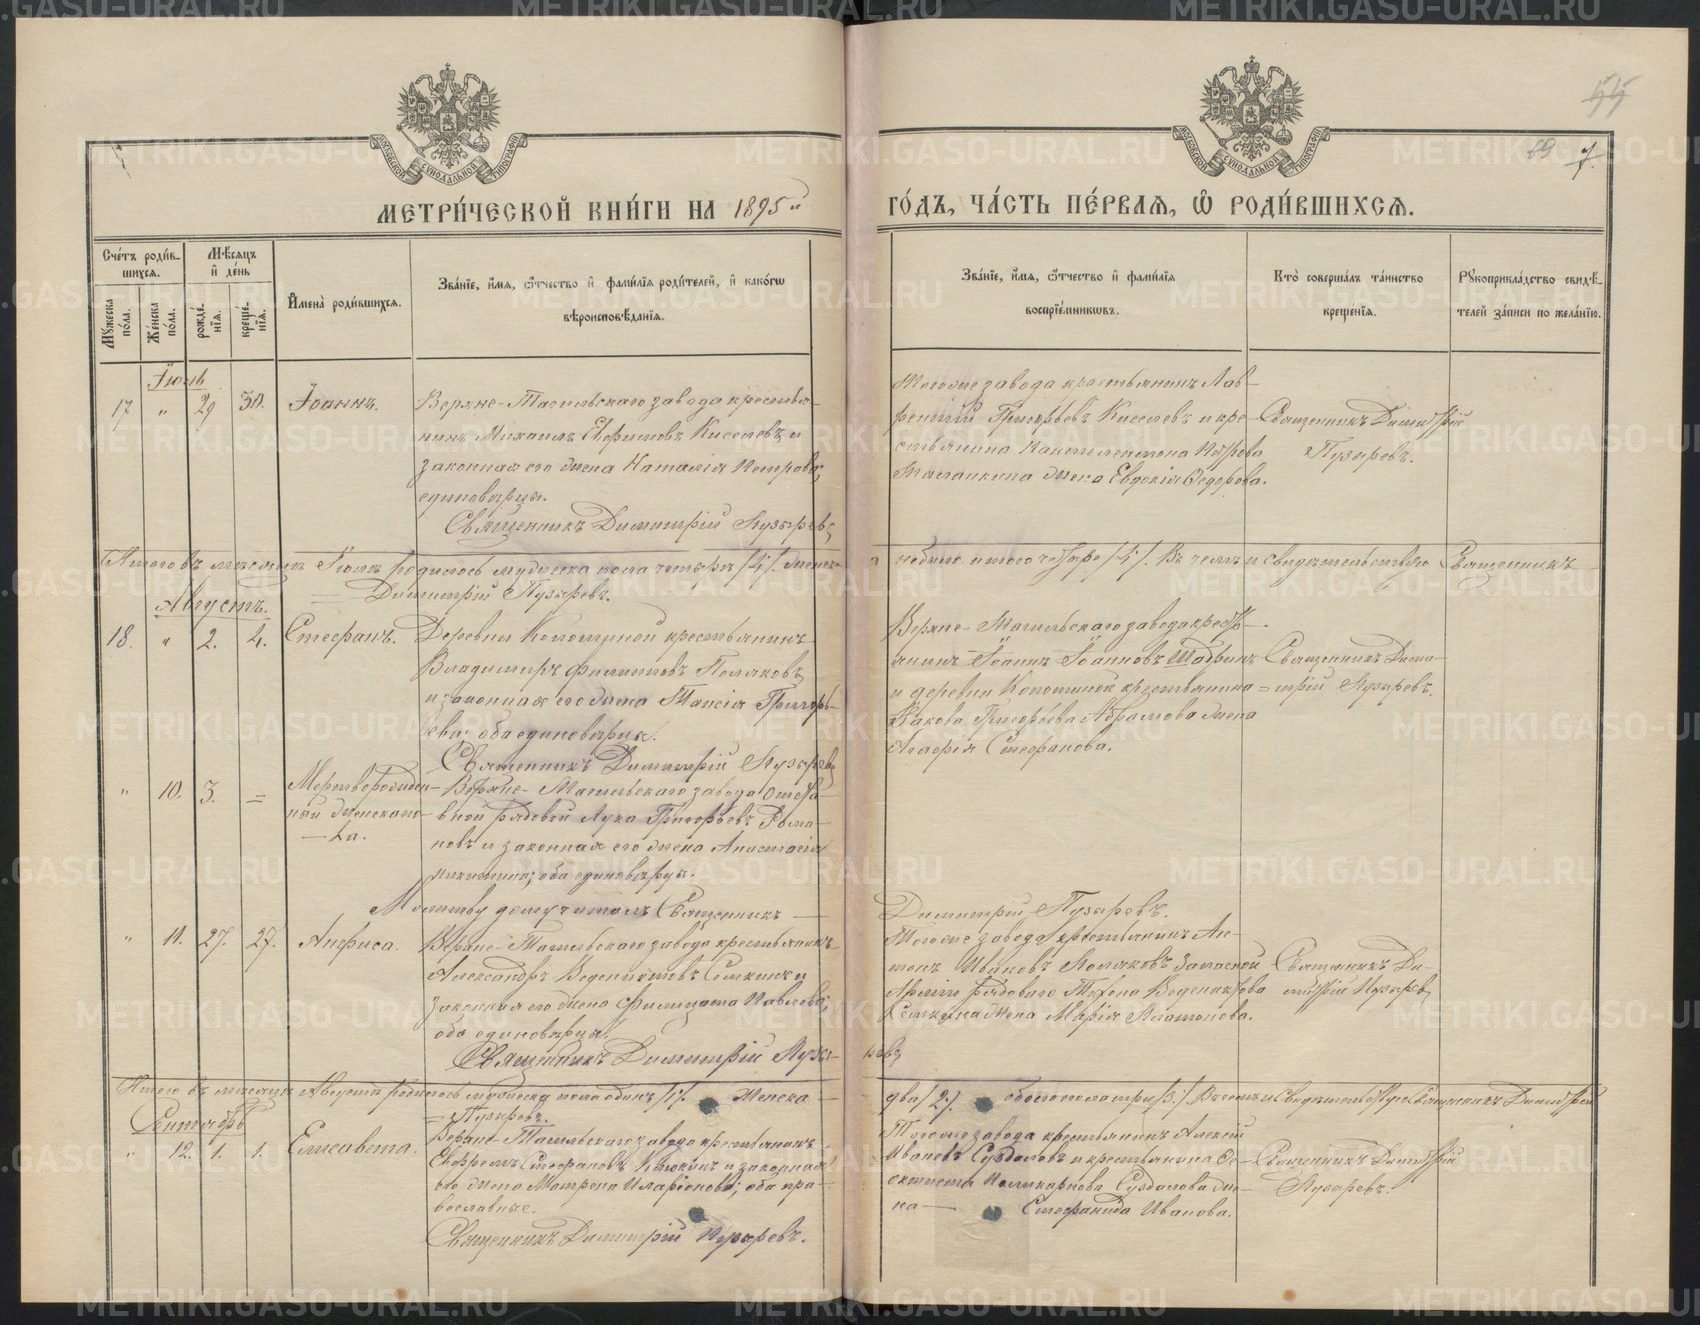 55
69 7
МЕТРИ́ЧЕСКОЙ КНИ́ГИ НА 1895й
ГО́ДЪ, ЧА́СТЬ ПЕ́РВАѦ, Ѡ РОДИ́ВШИХСѦ.
Сче́тъ роди́в-
шихсѧ.
Мѣсѧцъ
и҆ де́нь
Мꙋжеска
по́ла.
Же́нска
по́ла.
рожде́-
нїѧ.
креще́-
нїѧ.
И҆мена̀ роди́вшихсѧ.
Зва́нїе, и҆́мѧ, ѻ҆́тчество и҆ фами́лїѧ роди́телей, и҆ како́гѡ
вѣроисповѣ́данїѧ.
Зва́нїе, и҆́мѧ, ѻ҆́тчество и҆ фами́лїѧ
воспрїе́мникѡвъ.
Кто̀ соверша́лъ та́инство
креще́нїѧ.
Рꙋкоприкла́дство свидѣ́-
телей за́писи по жела́нїю.
Іюль
17 " 29 30. Іоаннъ.
Верхне-Тагильскаго завода крестья-
нинъ Михаилъ Ефимовъ Киселевъ и
законная его жена Наталія Петрова,
единоверцы.
Священникъ Димитрій Пузыревъ
Тогоже завода крестьянинъ Лав-
рентій Григорьевъ Киселевъ и кре-
стьянина Пантелеимона Петрова
жена Евдокія Ѳедорова.
Священникъ Димитрій
Пузыревъ.
Итого въ месяце Іюле родилось мужеска пола четыре /4/. женска
небыло итого четыре /4/. Въ чемъ и свидетельствую Священникъ
Димитрій Пузыревъ.
Августъ.
18. " 2. 4. Стефанъ.
Деревни крестьянинъ
Владимиръ Филипповъ Поляковъ
и законная его жена Таисія Григорь-
ева; оба единоверцы.
Священникъ Димитрій Пузыревъ
Верхне-Тагильскаго завода кресть-
янинъ Іоаннъ Іоанновъ Шадринъ
и деревни крестьянина
Іакова Григорьева Абрамова жена
Агафія Стефанова.
Священникъ Дими-
трій Пузыревъ.
" 10. 3. =
Мертворожден-
ный женскаго
п-ла.
Верхне-Тагильскаго завода отста-
вной рядовой Лука Григорьевъ Рома-
новъ и законная его жена Анастасія
Никитина; оба единоверцы.
Молитву дому читалъ Священникъ
Димитрій Пузыревъ.
" 11. 27. 27. Анфиса.
Верхне-Тагильскаго завода крестьянинъ
Александръ Веденихтовъ Семкинъ и
законная его жена Фелицата Павлова;
оба единоверцы.
Священникъ Димитрій Пузы-
ревъ
Тогоже завода крестьянинъ Ан-
тонъ Ивановъ Поляковъ Запасной
Арміи рядоваго Тихона Веденихтова
Семкина жена Марія Платонова.
Священникъ Ди-
митрій Пузыревъ
Итого въ месяце Августе родилось мужеска пола одинъ /1/. Женска
два /2/. обоего пола три /3/. Въ чемъ и Свидетельствую Священникъ Димитрій
Пузыревъ.
Сентябрь
" 12. 1. 1. Елисавета.
Верхне-Тагильскаго завода крестьянинъ
Ефремъ Стефановъ и законная
его жена Матрена Иларіонова; оба пра-
вославные.
Священникъ Димитрій Пузыревъ.
Тогоже завода крестьянинъ Алексій
Ивановъ Суздаловъ и крестьянина Ѳе-
октиста Поликарпова Суздалова же-
на Стефанида Иванова.
Священникъ Димитрій
Пузыревъ.